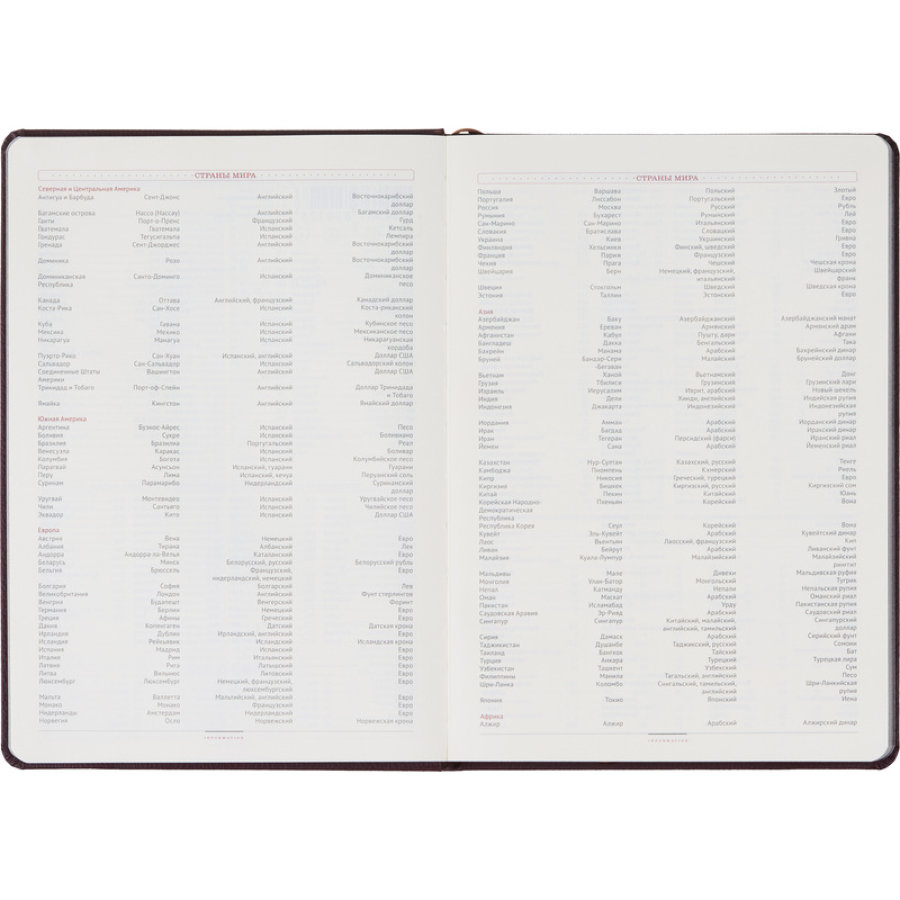 СТРАНЫ МИРА
Северная и Центральная Америка
Антигуа и Барбуда Сент-Джонс Английский Восточнокарибский
доллар
Багамские острова Нассо (Нассау) Английский Багамский доллар
Гаити Порт-о-Пренс Французский Гурд
Гватемала Гватемала Испанский Кетсаль
Гондурас Тегусигальпа Испанский Лемпира
Гренада Сент-Джорджес Английский Восточнокарибский
доллар
Доминика Розо Английский Восточнокарибский
доллар
Доминиканская Санто-Доминго Испанский Доминиканское
Республика песо
Канада Оттава Английский, французский Канадский доллар
Коста-Рика Сан-Хосе Испанский Коста-риканский
колон
Куба Гавана Испанский Кубинское песо
Мексика Мехико Испанский Мексиканское песо
Никарагуа Манагуа Испанский Никарагуанская
кордоба
Пуэрто-Рико Сан-Хуан Испанский, английский Доллар США
Сальвадор Сан-Сальвадор Испанский Сальвадорский колон
Соединенные Штаты Вашингтон Английский Доллар США
Америки
Тринидад и Тобаго Порт-оф-Спейн Английский Доллар Тринидада
и Тобаго
Ямайка Кингстон Английский Ямайский доллар
Южная Америка
Аргентина Буэнос-Айрес Испанский Песо
Боливия Сукре Испанский Боливиано
Бразилия Бразилиа Португальский Реал
Венесуэла Каракас Испанский Боливар
Колумбия Богота Испанский Колумбийское песо
Парагвай Асунсьон Испанский, гуарани Гуарани
Перу Лима Испанский, кечуа Перуанский соль
Суринам Парамарибо Нидерландский Суринамский
доллар
Уругвай Монтевидео Испанский Уругвайское песо
Чили Сантьяго Испанский Чилийское песо
Эквадор Кито Испанский Доллар США
Европа
Австрия Вена Немецкий Евро
Албания Тирана Албанский Лек
Андорра Андорра-ла-Велья Каталанский Евро
Беларусь Минск Белорусский, русский Белорусский рубль
Бельгия Брюссель Французский, Евро
нидерландский, немецкий
Болгария София Болгарский Лев
Великобритания Лондон Английский Фунт стерлингов
Венгрия Будапешт Венгерский Форинт
Германия Берлин Немецкий Евро
Греция Афины Греческий Евро
Дания Копенгаген Датский Датская крона
Ирландия Дублин Ирландский, английский Евро
Исландия Рейкьявик Исландский Исландская крона
Испания Мадрид Испанский Евро
Италия Рим Итальянский Евро
Латвия Рига Латышский Евро
Литва Вильнюс Литовский Евро
Люксембург Люксембург Немецкий, французский, Евро
люксембургский
Мальта Валлетта Мальтийский, английский Евро
Монако Монако Французский Евро
Нидерланды Амстердам Нидерландский Евро
Норвегия Осло Норвежский Норвежская крона
INFORMATION
СТРАНЫ МИРА
Польша Варшава Польский Злотый
Португалия Лиссабон Португальский Евро
Россия Москва Русский Рубль
Румыния Бухарест Румынский Лей
Сан-Марино Сан-Марино Итальянский Евро
Словакия Братислава Словацкий Евро
Украина Киев Украинский Гривна
Финляндия Хельсинки Финский, шведский Евро
Франция Париж Французский Евро
Чехия Прага Чешский Чешская крона
Швейцария Берн Немецкий, французский, Швейцарский
итальянский франк
Швеция Стокгольм Шведский Шведская крона
Эстония Таллин Эстонский Евро
Азия
Азербайджан Баку Азербайджанский Азербайджанский манат
Армения Ереван Армянский Армянский драм
Афганистан Кабул Пушту, дари Афгани
Бангладеш Дакка Бенгальский Така
Бахрейн Манама Арабский Бахрейнский динар
Бруней Бандар-Сери Малайский Брунейский доллар
-Бегаван
Вьетнам Ханой Вьетнамский Донг
Грузия Тбилиси Грузинский Грузинский лари
Израиль Иерусалим Иврит, арабский Новый шекель
Индия Дели Хинди, английский Индийская рупия
Индонезия Джакарта Индонезийский Индонезийская
рупия
Иордания Амман Арабский Иорданский динар
Ирак Багдад Арабский Иракский динар
Иран Тегеран Персидский (фарси) Иранский риал
Йемен Сана Арабский Йеменский риал
Казахстан Нур-Султан Казахский, русский Тенге
Камбоджа Пномпень Кхмерский Риель
Кипр Никосия Греческий, турецкий Евро
Киргизия Бишкек Киргизский, русский Киргизский сом
Китай Пекин Китайский Юань
Корейская Народно- Пхеньян Корейский Вона
Демократическая
Республика
Республика Корея Сеул Корейский Вона
Кувейт Эль-Кувейт Арабский Кувейтский динар
Лаос Вьентьян Лаосский, французский Кип
Ливан Бейрут Арабский Ливанский фунт
Малайзия Куала-Лумпур Малайзийский Малайзийский
ринггит
Мальдивы Мале Дивехи Мальдивская руфия
Монголия Улан-Батор Монгольский Тугрик
Непал Катманду Непали Непальская рупия
Оман Маскат Арабский Оманский риал
Пакистан Исламабад Урду Пакистанская рупия
Саудовская Аравия Эр-Рияд Арабский Саудовский риал
Сингапур Сингапур Китайский, малайский, Сингапурский
английский, тамильский доллар
Сирия Дамаск Арабский Сирийский фунт
Таджикистан Душанбе Таджикский, русский Сомони
Таиланд Бангкок Тайский Бат
Турция Анкара Турецкий Турецкая лира
Узбекистан Ташкент Узбекский Сум
Филиппины Манила Тагальский, английский Песо
Шри-Ланка Коломбо Сингальский, тамильский, Шри-Ланкийская
английский рупия
Япония Токио Японский Иена
Африка
Алжир Алжир Арабский Алжирский динар
INFORMATION